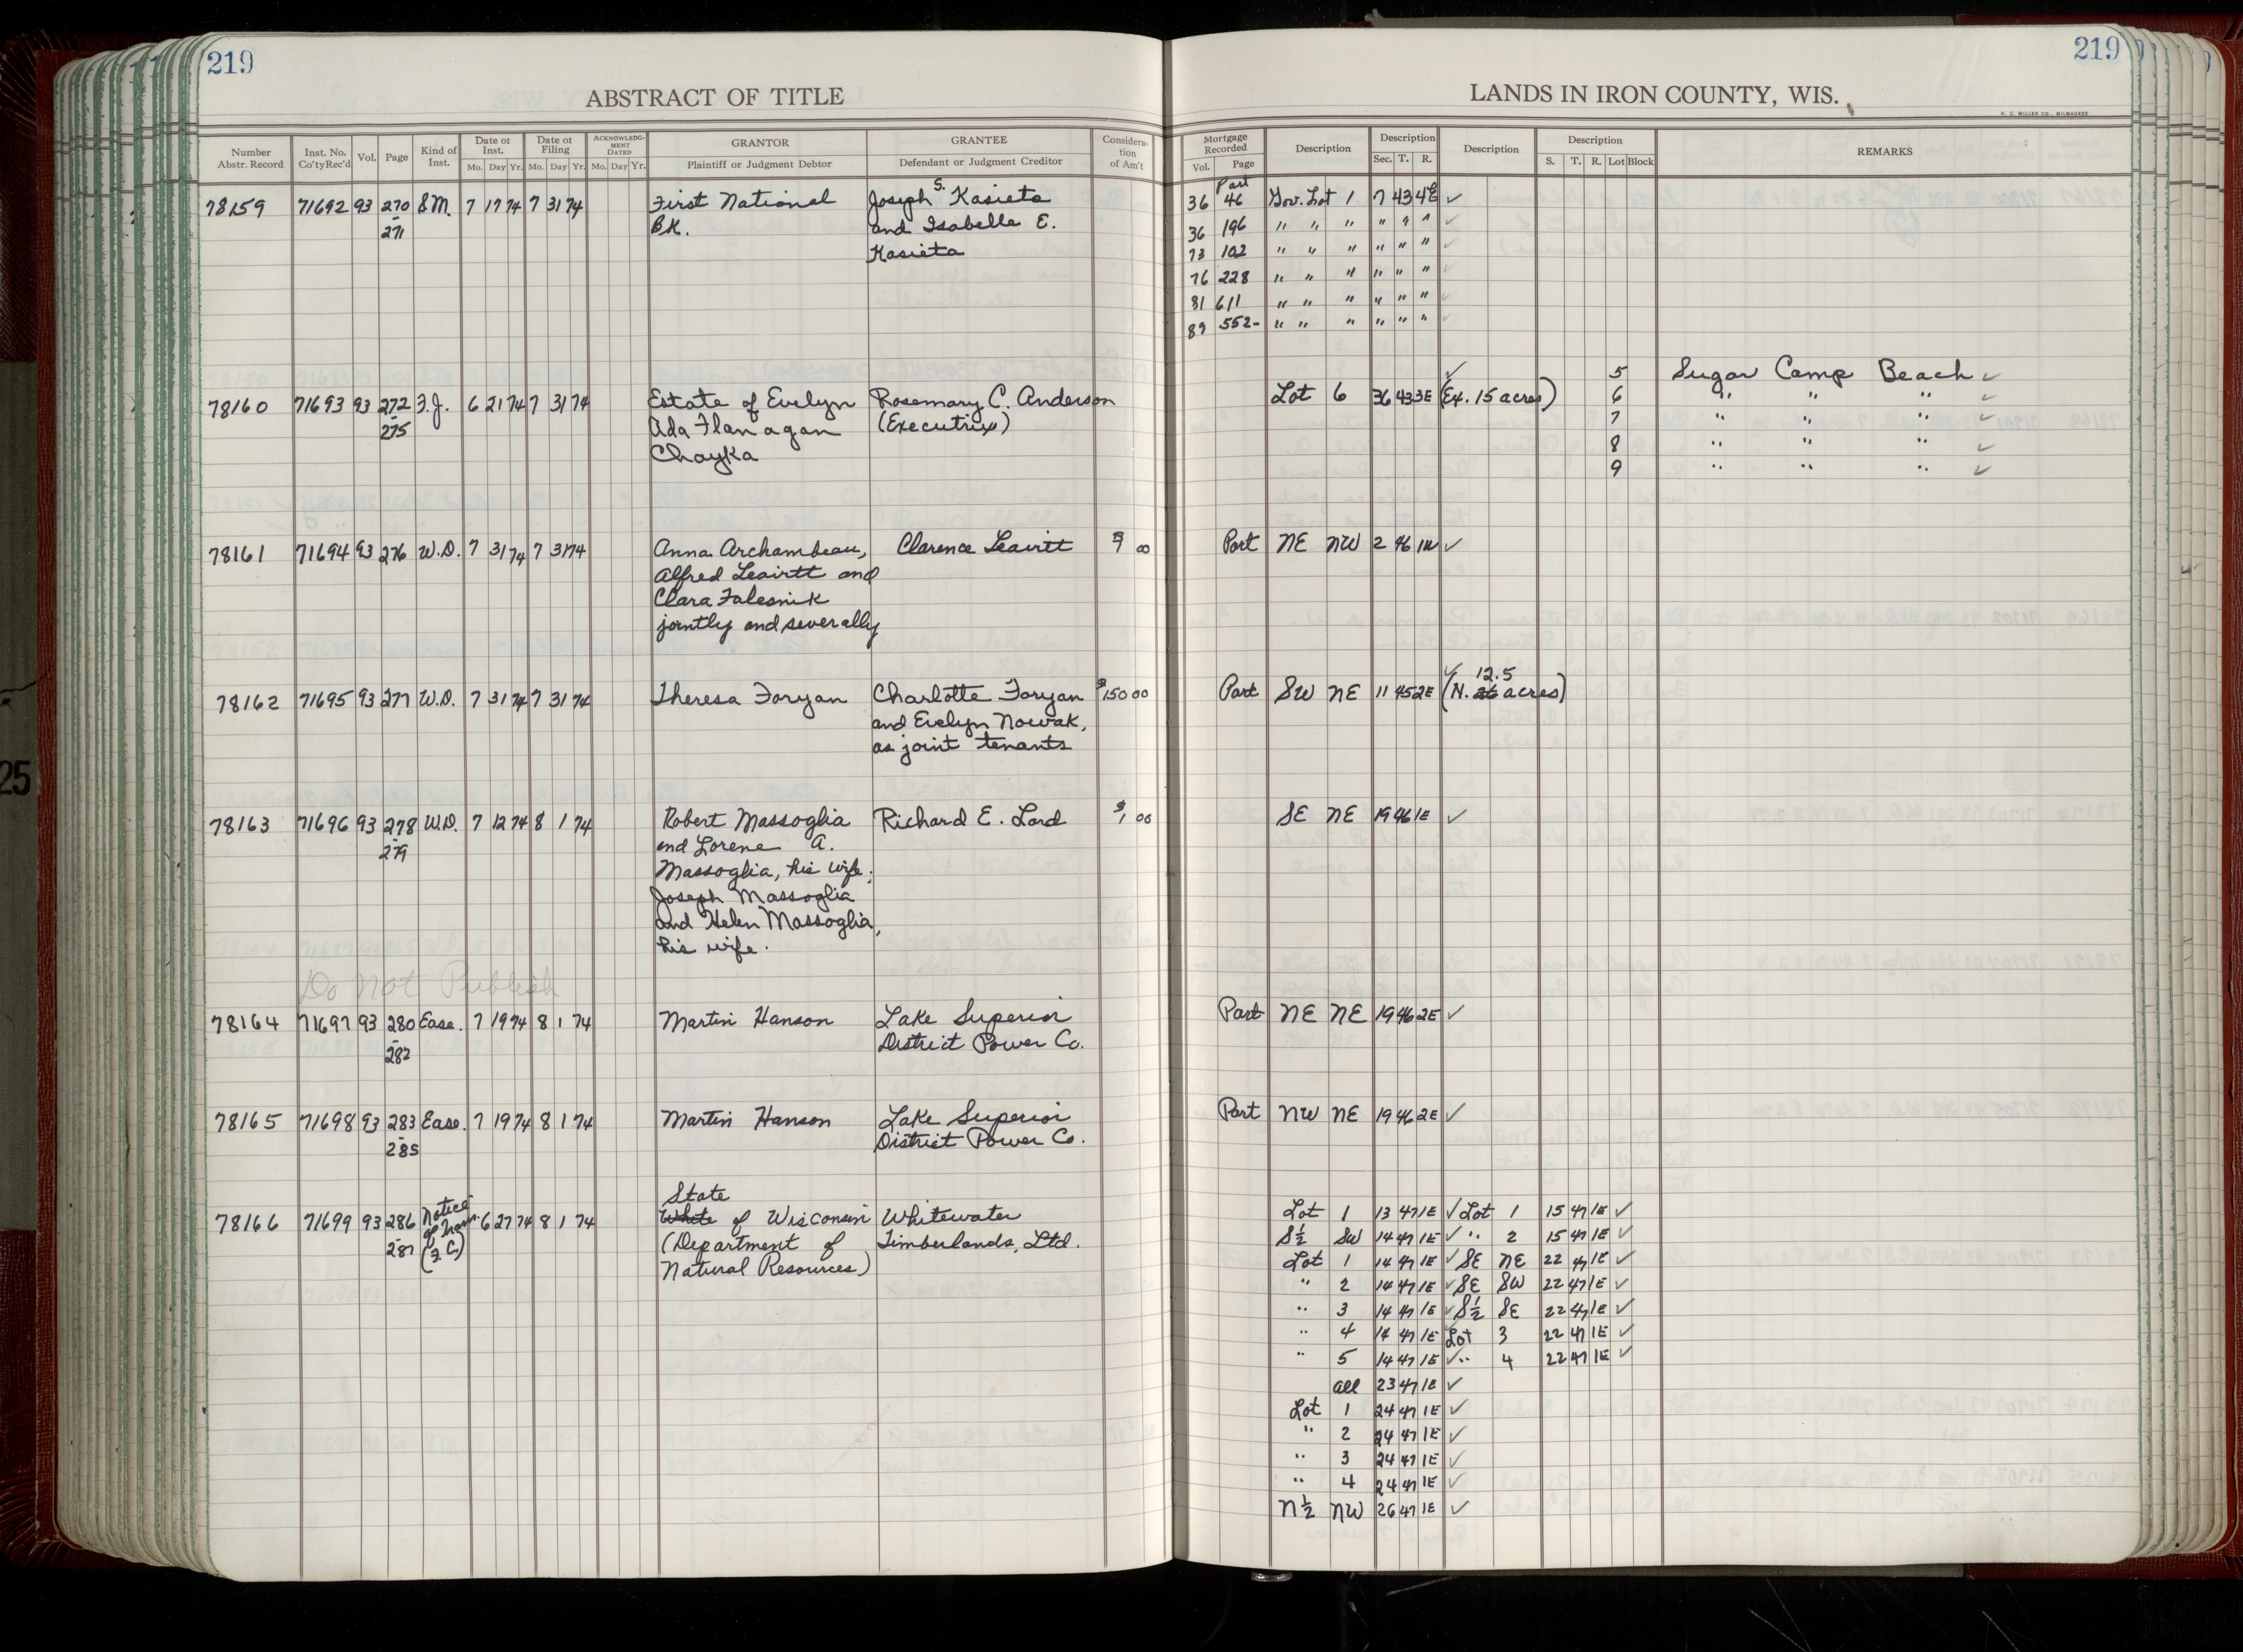 219
ABSTRACT OF TITLE
Number Abstr. Record | Inst. No. Co'ty Rec'd | Vol. | Page | Kind of Inst. | Date of Inst. Mo. Day Yr. | Date of Filing Mo. Day Yr. | ACKNOWLEDGMENT DATED Mo. Day Yr. | GRANTOR Plaintiff or Judgment Debtor | GRANTEE Defendant or Judgment Creditor | Consideration of Am't
78159 71692 93 270 S.M. 7 17 74 7 31 74 First National Joseph S. Kasieta
- 271 BK. and Isabelle E.
Kasieta
78160 71693 93 272 F.J. 6 21 74 7 31 74 Estate of Evelyn Rosemary C. Anderson
- 275 Ada Flanagan (Executrix)
Chayka
78161 71694 93 276 W.D. 7 31 74 7 31 74 Anna Archambeau, Clarence Leavitt $ 00
Alfred Leavitt and
Clara Falesnik
jointly and severally
78162 71695 93 277 W.D. 7 31 74 7 31 74 Theresa Foryan Charlotte Foryan $150 00
and Evelyn Nowak,
as joint tenants
78163 71696 93 278 W.D. 7 12 74 8 1 74 Robert Massoglia Richard E. Lord $1 00
- 279 and Lorene A.
Massoglia, his wife;
Joseph Massoglia
and Helen Massoglia,
his wife.
Do Not Publish
78164 71697 93 280 Ease. 7 19 74 8 1 74 Martin Hanson Lake Superior
- 282 District Power Co.
78165 71698 93 283 Ease. 7 19 74 8 1 74 Martin Hanson Lake Superior
- 285 District Power Co.
State
78166 71699 93 286 Notice of (F.C.) 6 27 74 8 1 74 White of Wisconsin Whitewater
- 287 (Department of Timberlands, Ltd.
Natural Resources)
219
LANDS IN IRON COUNTY, WIS.
H. C. MILLER CO., MILWAUKEE
Mortgage Recorded Vol. Page | Description | Description Sec. T. R. | Description | Description S. T. R. Lot Block | REMARKS
Part
36 46 Gov. Lot 1 7 43 4E ✓
36 196 " " " " " " ✓
73 102 " " " " " " ✓
76 228 " " " " " " ✓
81 611 " " " " " " ✓
89 552- " " " " " " ✓
✓ 5 Sugar Camp Beach ✓
Lot 6 36 43 3E (Ex. 15 acres) 6 " " " ✓
7 " " " ✓
8 " " " ✓
9 " " " ✓
Part NE NW 2 46 1W ✓
✓ 12.5
Part SW NE 11 45 2E (N. 26 acres)
SE NE 19 46 1E ✓
Part NE NE 19 46 2E ✓
Part NW NE 19 46 2E ✓
Lot 1 13 47 1E ✓ Lot 1 15 47 1E ✓
S½ SW 14 47 1E ✓ " 2 15 47 1E ✓
Lot 1 14 47 1E ✓ SE NE 22 47 1E ✓
" 2 14 47 1E ✓ SE SW 22 47 1E ✓
" 3 14 47 1E ✓ S½ SE 22 47 1E ✓
" 4 14 47 1E Lot 3 22 47 1E ✓
" 5 14 47 1E ✓ " 4 22 47 1E ✓
all 23 47 1E ✓
Lot 1 24 47 1E ✓
" 2 24 47 1E ✓
" 3 24 47 1E ✓
" 4 24 47 1E ✓
N½ NW 26 47 1E ✓
25